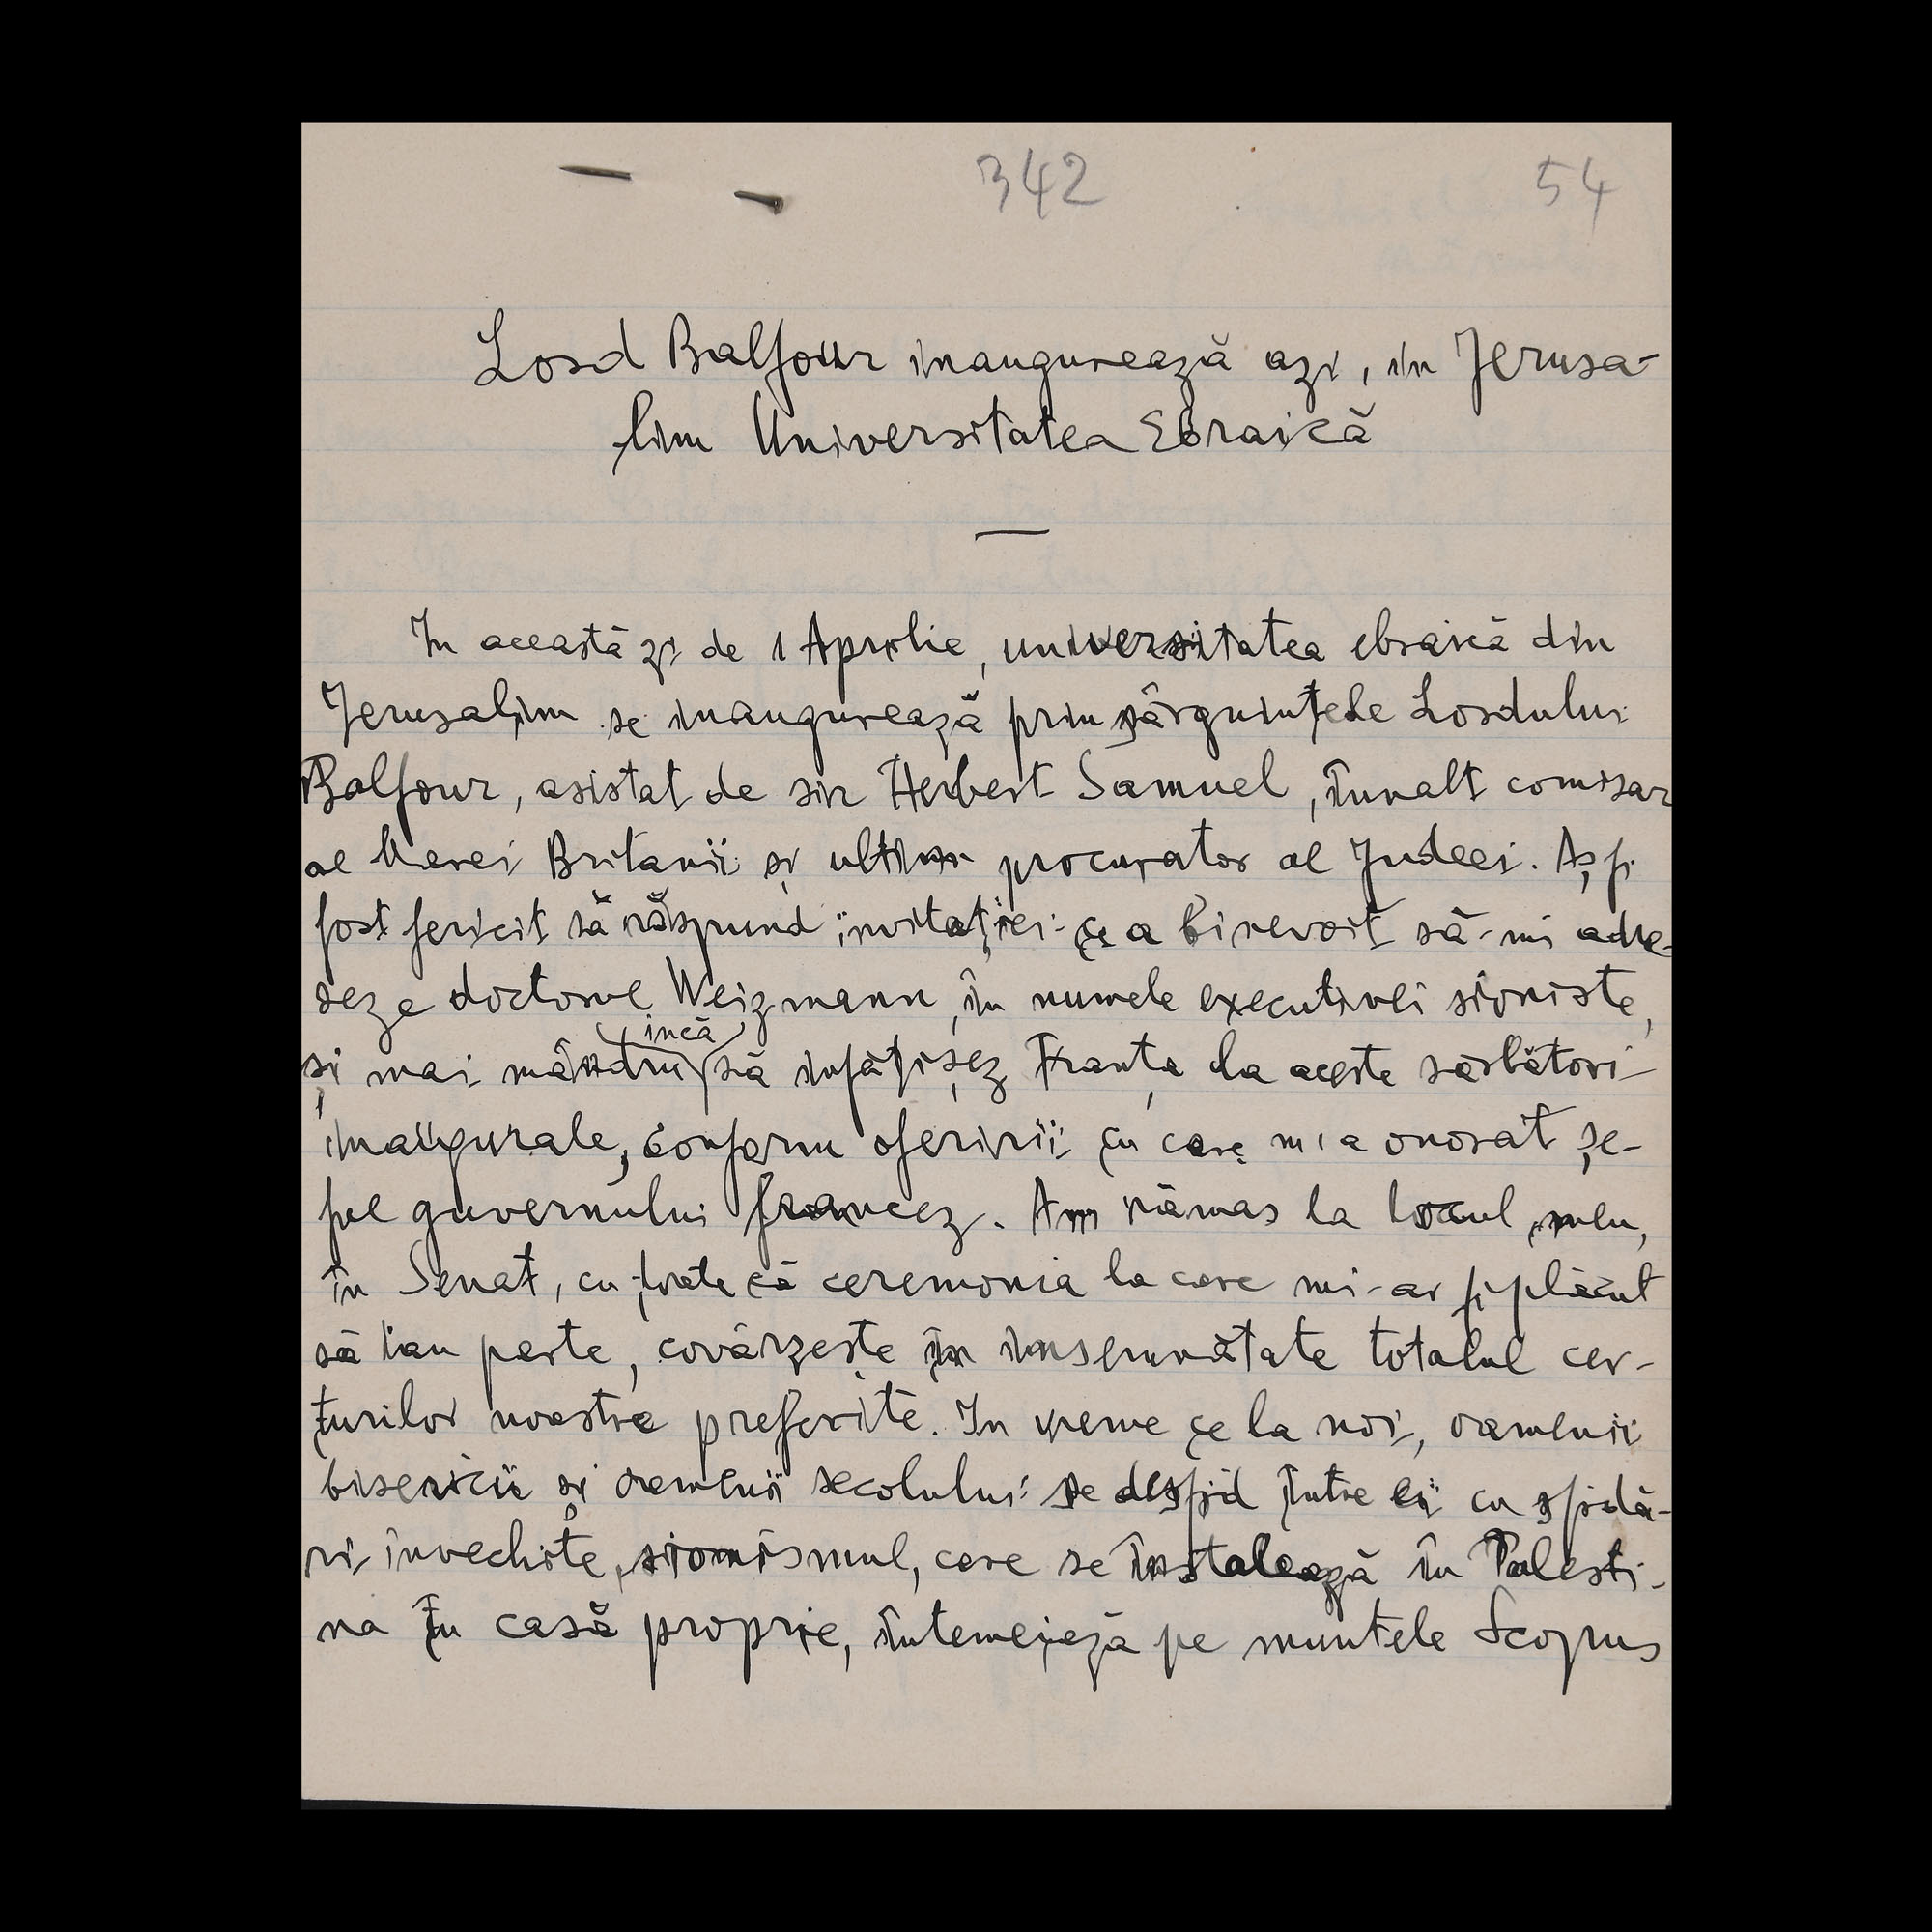 342 54
Lord Balfour inaugurează azi, in Jerusa-
lim Universitatea Ebraică
In această zi de 1 Aprilie, universitatea ebraică din
Jerusalim se inaugurează prin sârguințele Lordului
Balfour, asistat de sir Herbert Samuel, înnalt comisar
al Marei Britanii și ultim procurator al Judeei. Aș fi
fost fericit să răspund invitației ce a binevoit să-mi adre-
seze doctorul Weizmann, în numele executivei sioniste,
și mai mândru încă să înfățișez Franța la aceste sărbători
inaugurale, conform oferirii cu care m'a onorat șe-
ful guvernului francez. Am rămas la locul meu,
în Senat, cu toate că ceremonia la care mi-ar fi plăcut
să iau parte, covârzește în însemnătate totalul cer-
turilor noastre preferite. In vreme ce la noi, oamenii
bisericii și oamenii secolului se desfid între ei cu sfidă-
ri învechite, sionismul, care se instalează în Palesti-
na în casă proprie, întemeiază pe muntele Scopus